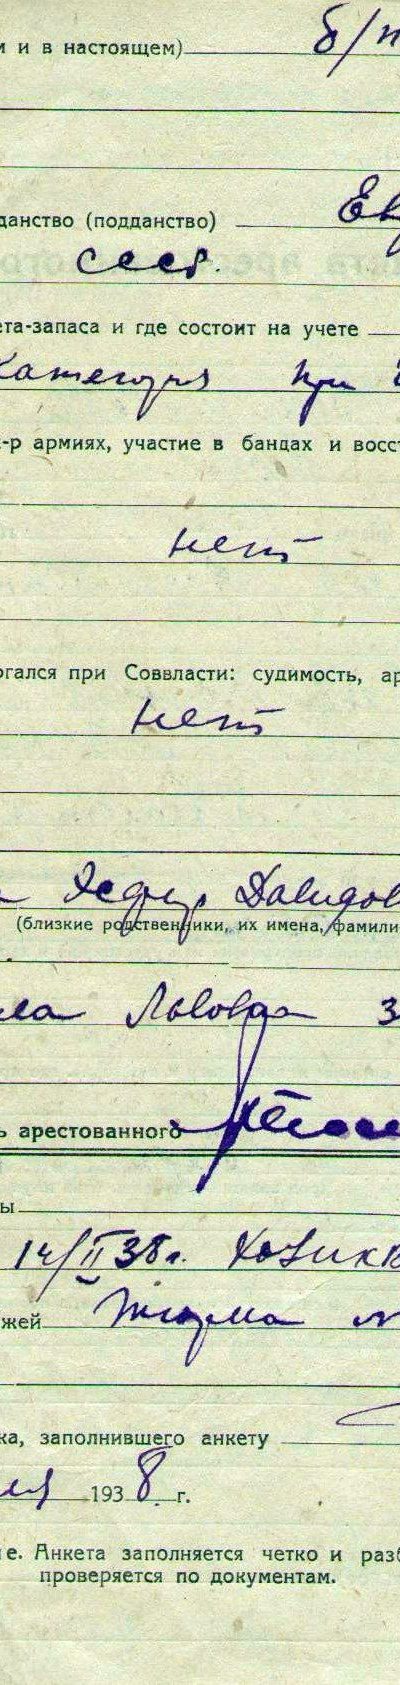 м и в настоящем) б/п
данство (подданство) Ев
ссср.
ета-запаса и где состоит на учете
категория при
-р армиях, участие в бандах и восст
нет
ргался при Соввласти: судимость, ар
нет
Давидов
(близкие родственники, их имена, фамили
ла Львовна 3
ь арестованного
ы
14/II 38 г.
жей Тюрма
ка, заполнившего анкету
1938 г.
е. Анкета заполняется четко и разб
проверяется по документам.